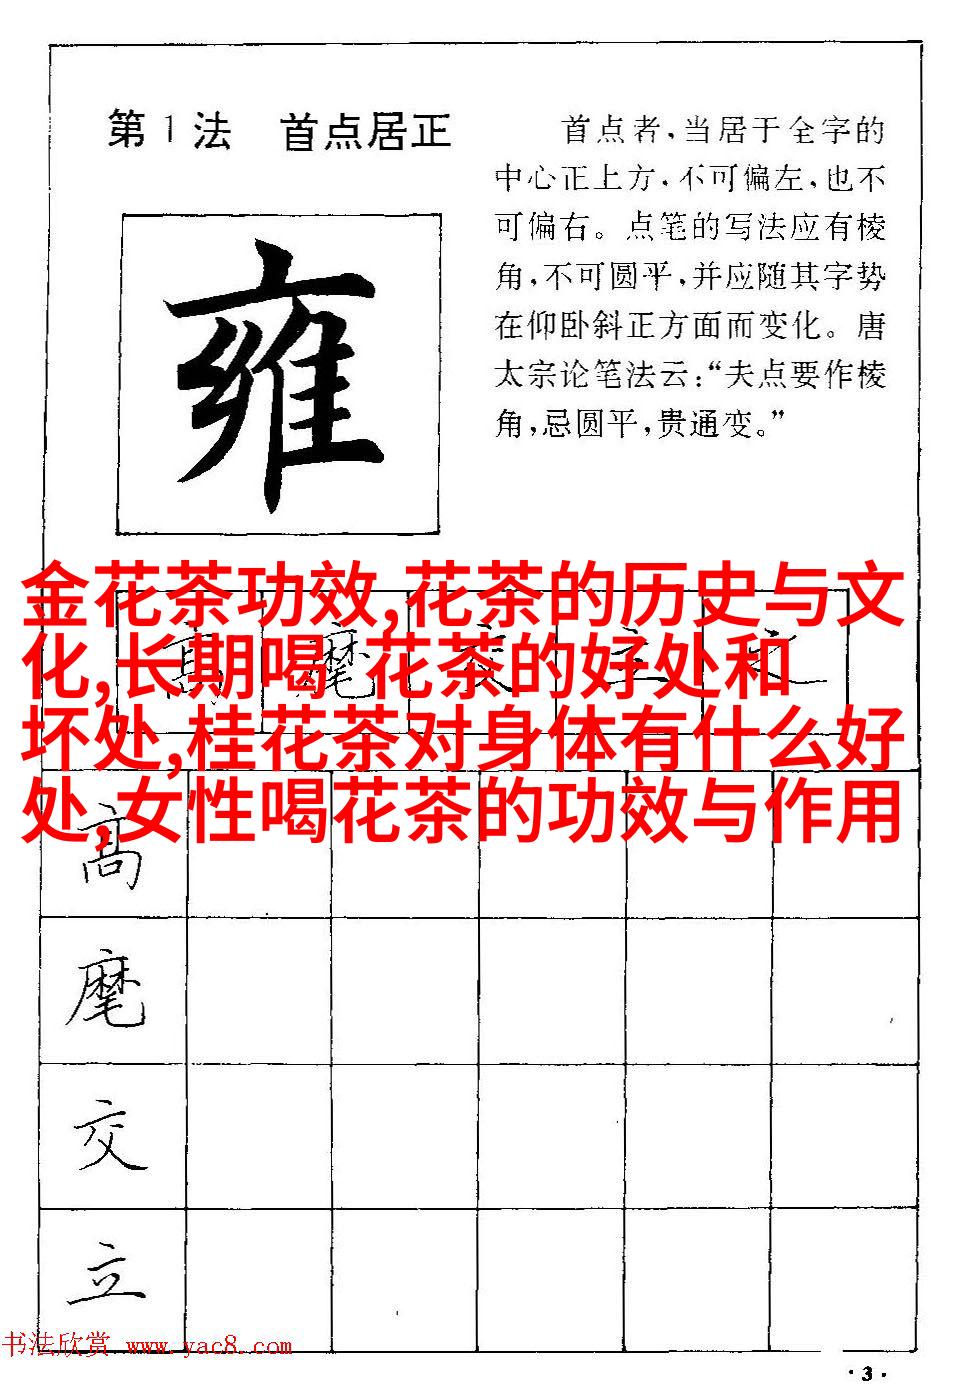 第1法 首点居正
首点者，当居于全字的
中心正上方，不可偏左，也不
可偏右。点笔的写法应有棱
角，不可圆平，并应随其字势
在仰卧斜正方面而变化。唐
太宗论笔法云：“夫点要作棱
角，忌圆平，贵通变。”
雍
金花茶功效,花茶的历史与文
化,长期喝 花茶的好处和
坏处,桂花茶对身体有什么好
处,女性喝花茶的功效与作用
高 麾 交 立 之
高
麾
交
立
书法欣赏 www.yac8.com
·3·